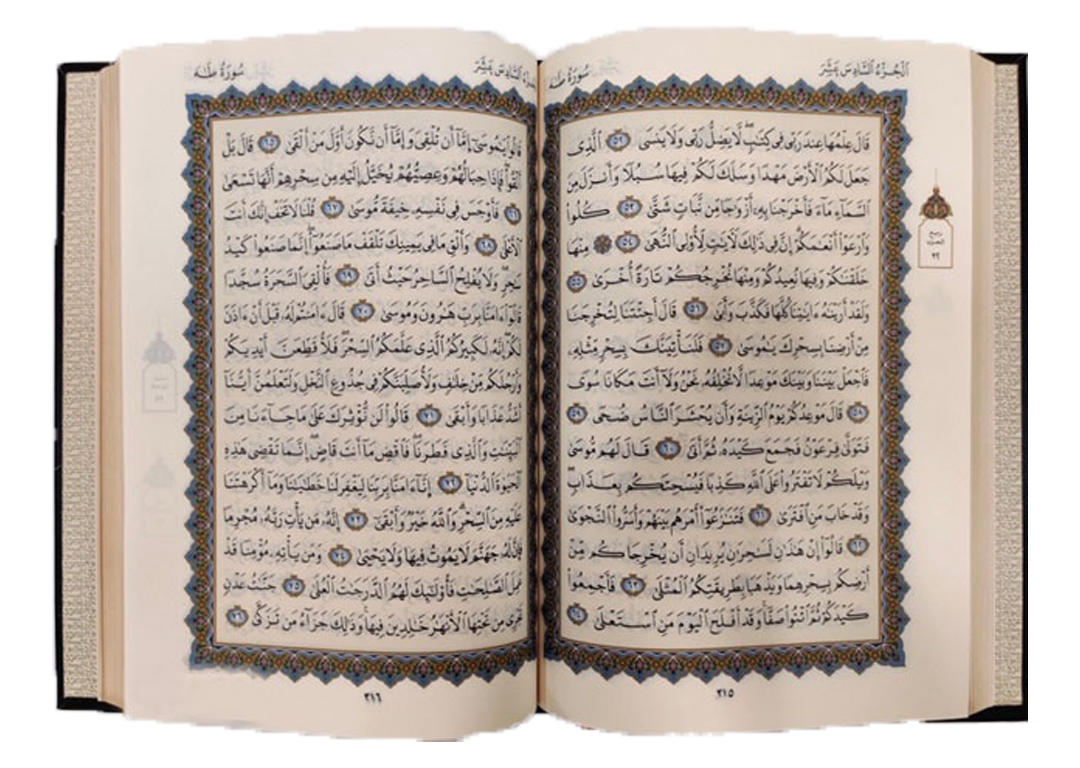 الْجُزْءُ السَّادِسَ عَشَرَ
سُورَةُ طه
قَالَ عِلْمُهَا عِندَ رَبِّى فِى كِتَٰبٍ ۖ لَّا يَضِلُّ رَبِّى وَلَا يَنسَى ٥٢ ٱلَّذِى
جَعَلَ لَكُمُ ٱلْأَرْضَ مَهْدًا وَسَلَكَ لَكُمْ فِيهَا سُبُلًا وَأَنزَلَ مِنَ
ٱلسَّمَآءِ مَآءً فَأَخْرَجْنَا بِهِۦٓ أَزْوَٰجًا مِّن نَّبَاتٍ شَتَّىٰ ٥٣ كُلُوا۟
وَٱرْعَوْا۟ أَنْعَٰمَكُمْ ۗ إِنَّ فِى ذَٰلِكَ لَءَايَٰتٍ لِّأُو۟لِى ٱلنُّهَىٰ ٥٤ ۞ مِنْهَا
خَلَقْنَٰكُمْ وَفِيهَا نُعِيدُكُمْ وَمِنْهَا نُخْرِجُكُمْ تَارَةً أُخْرَىٰ ٥٥
وَلَقَدْ أَرَيْنَٰهُ ءَايَٰتِنَا كُلَّهَا فَكَذَّبَ وَأَبَىٰ ٥٦ قَالَ أَجِئْتَنَا لِتُخْرِجَنَا
مِنْ أَرْضِنَا بِسِحْرِكَ يَٰمُوسَىٰ ٥٧ فَلَنَأْتِيَنَّكَ بِسِحْرٍ مِّثْلِهِۦ
فَٱجْعَلْ بَيْنَنَا وَبَيْنَكَ مَوْعِدًا لَّا نُخْلِفُهُۥ نَحْنُ وَلَآ أَنتَ مَكَانًا سُوًى
٥٨ قَالَ مَوْعِدُكُمْ يَوْمُ ٱلزِّينَةِ وَأَن يُحْشَرَ ٱلنَّاسُ ضُحًى ٥٩
فَتَوَلَّىٰ فِرْعَوْنُ فَجَمَعَ كَيْدَهُۥ ثُمَّ أَتَىٰ ٦٠ قَالَ لَهُم مُّوسَىٰ
وَيْلَكُمْ لَا تَفْتَرُوا۟ عَلَى ٱللَّهِ كَذِبًا فَيُسْحِتَكُم بِعَذَابٍ ۖ
وَقَدْ خَابَ مَنِ ٱفْتَرَىٰ ٦١ فَتَنَٰزَعُوٓا۟ أَمْرَهُم بَيْنَهُمْ وَأَسَرُّوا۟ ٱلنَّجْوَىٰ
٦٢ قَالُوٓا۟ إِنْ هَٰذَٰنِ لَسَٰحِرَٰنِ يُرِيدَانِ أَن يُخْرِجَاكُم مِّنْ
أَرْضِكُم بِسِحْرِهِمَا وَيَذْهَبَا بِطَرِيقَتِكُمُ ٱلْمُثْلَىٰ ٦٣ فَأَجْمِعُوا۟
كَيْدَكُمْ ثُمَّ ٱئْتُوا۟ صَفًّا ۚ وَقَدْ أَفْلَحَ ٱلْيَوْمَ مَنِ ٱسْتَعْلَىٰ ٦٤
٣١٥
السَّادِسَ عَشَرَ
سُورَةُ طه
قَالُوا۟ يَٰمُوسَىٰٓ إِمَّآ أَن تُلْقِىَ وَإِمَّآ أَن نَّكُونَ أَوَّلَ مَنْ أَلْقَىٰ ٦٥ قَالَ بَلْ
أَلْقُوا۟ ۖ فَإِذَا حِبَالُهُمْ وَعِصِيُّهُمْ يُخَيَّلُ إِلَيْهِ مِن سِحْرِهِمْ أَنَّهَا تَسْعَىٰ
٦٦ فَأَوْجَسَ فِى نَفْسِهِۦ خِيفَةً مُّوسَىٰ ٦٧ قُلْنَا لَا تَخَفْ إِنَّكَ أَنتَ
ٱلْأَعْلَىٰ ٦٨ وَأَلْقِ مَا فِى يَمِينِكَ تَلْقَفْ مَا صَنَعُوٓا۟ ۖ إِنَّمَا صَنَعُوا۟ كَيْدُ
سَٰحِرٍ ۖ وَلَا يُفْلِحُ ٱلسَّاحِرُ حَيْثُ أَتَىٰ ٦٩ فَأُلْقِىَ ٱلسَّحَرَةُ سُجَّدًا
قَالُوٓا۟ ءَامَنَّا بِرَبِّ هَٰرُونَ وَمُوسَىٰ ٧٠ قَالَ ءَامَنتُمْ لَهُۥ قَبْلَ أَنْ ءَاذَنَ
لَكُمْ ۖ إِنَّهُۥ لَكَبِيرُكُمُ ٱلَّذِى عَلَّمَكُمُ ٱلسِّحْرَ ۖ فَلَأُقَطِّعَنَّ أَيْدِيَكُمْ
وَأَرْجُلَكُم مِّنْ خِلَٰفٍ وَلَأُصَلِّبَنَّكُمْ فِى جُذُوعِ ٱلنَّخْلِ وَلَتَعْلَمُنَّ أَيُّنَآ
أَشَدُّ عَذَابًا وَأَبْقَىٰ ٧١ قَالُوا۟ لَن نُّؤْثِرَكَ عَلَىٰ مَا جَآءَنَا مِنَ
ٱلْبَيِّنَٰتِ وَٱلَّذِى فَطَرَنَا ۖ فَٱقْضِ مَآ أَنتَ قَاضٍ ۖ إِنَّمَا تَقْضِى هَٰذِهِ
ٱلْحَيَوٰةَ ٱلدُّنْيَآ ٧٢ إِنَّآ ءَامَنَّا بِرَبِّنَا لِيَغْفِرَ لَنَا خَطَٰيَٰنَا وَمَآ أَكْرَهْتَنَا
عَلَيْهِ مِنَ ٱلسِّحْرِ ۗ وَٱللَّهُ خَيْرٌ وَأَبْقَىٰٓ ٧٣ إِنَّهُۥ مَن يَأْتِ رَبَّهُۥ مُجْرِمًا
فَإِنَّ لَهُۥ جَهَنَّمَ لَا يَمُوتُ فِيهَا وَلَا يَحْيَىٰ ٧٤ وَمَن يَأْتِهِۦ مُؤْمِنًا قَدْ
عَمِلَ ٱلصَّٰلِحَٰتِ فَأُو۟لَٰٓئِكَ لَهُمُ ٱلدَّرَجَٰتُ ٱلْعُلَىٰ ٧٥ جَنَّٰتُ عَدْنٍ
تَجْرِى مِن تَحْتِهَا ٱلْأَنْهَٰرُ خَٰلِدِينَ فِيهَا ۚ وَذَٰلِكَ جَزَآءُ مَن تَزَكَّىٰ ٧٦
٣١٦